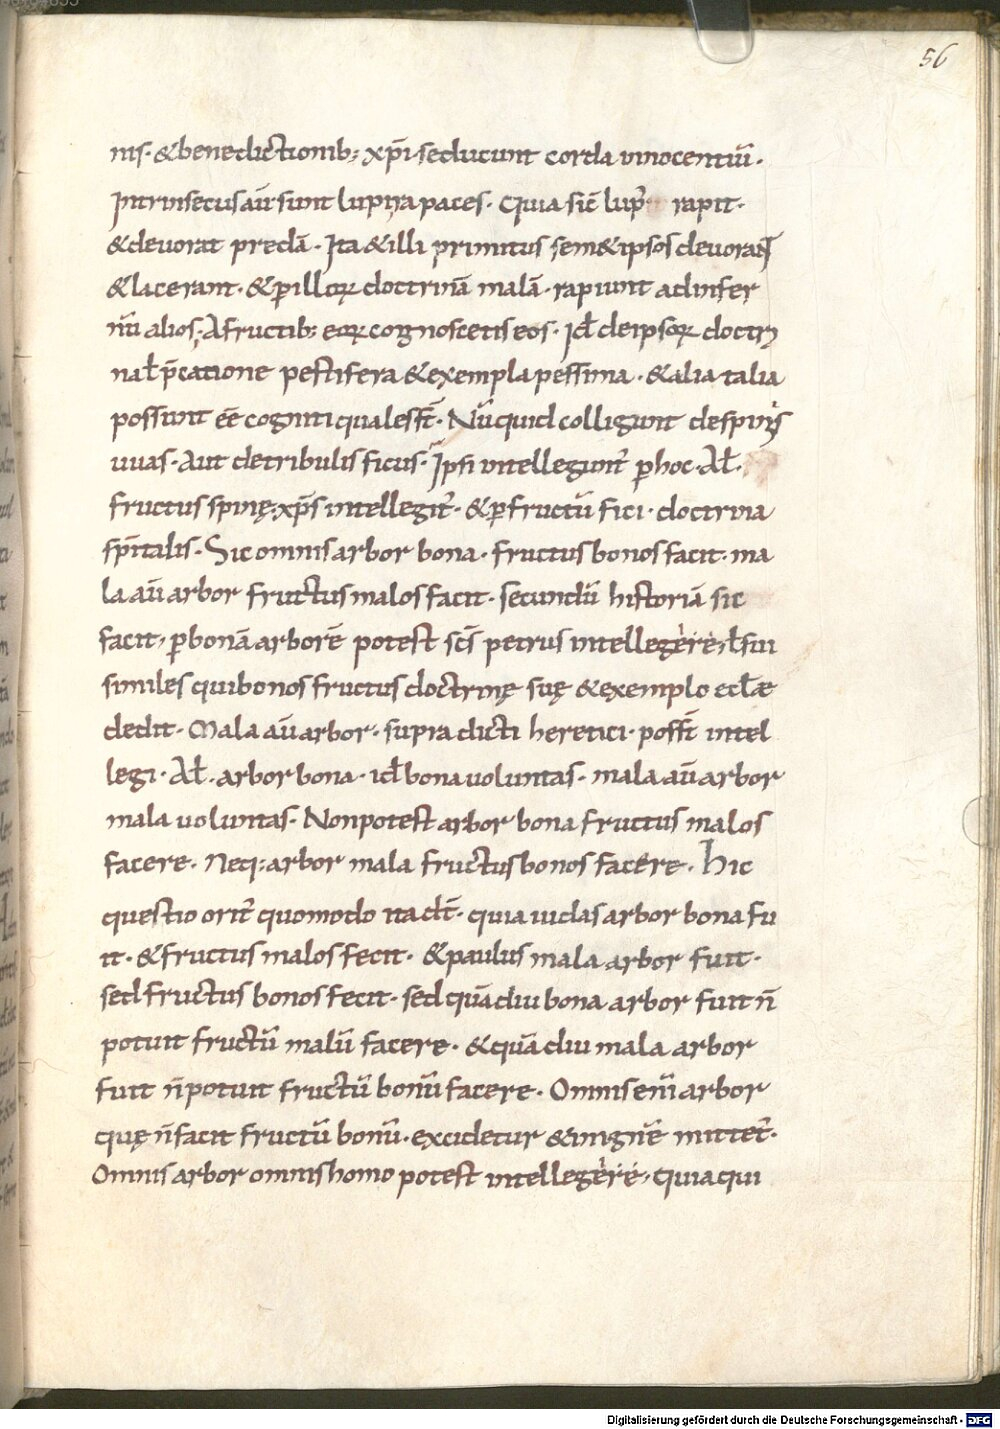 56
nis· &benedictionib; xp̄i seducunt corda innocentiū·
Intrinsecus aū sunt lupi rapaces· Quia sic̄ lup' rapit·
&deuorat predā· Ita &illi primitus sem&ipsos deuorant
&lacerant· &p̱ illoꝝ doctrinā malā· rapiunt adinfer
nū alios· Afructib; eoꝝ cognoscetis eos· Id̄ deipsoꝝ doctri
na ł p̄catione pestifera &exempla pessima· &alia talia
possunt ēē cogniti quales st̄· Nūquid colligunt despinis
uuas· Aut detribulis ficus· Ipsi intellegunt̄ p̱ hoc· Al̄·
fructus spinę· xp̄s intellegit̄· &p̱ fructū fici· doctrina
sp̄italis· Sic omnis arbor bona· fructus bonos facit· ma
la aū arbor fructus malos facit· secundū historiā sic
facit, p̱ bonā arborē potest sc̄s petrus intellegere, ł sui
similes qui bonos fructus doctrinę suę &exemplo eccl̄æ
dedit· Mala aū arbor· supra dicti heretici· posst̄ intel
legi· Al̄· arbor bona· id̄ bona uoluntas· mala aū arbor
mala uoluntas· Non potest arbor bona fructus malos
facere· Neq; arbor mala fructus bonos facere· Hic
questio orit̄ quomodo ita dt̄· quia iudas arbor bona fu
it· &fructus malos fecit· &paulus mala arbor fuit·
sed fructus bonos fecit· sed quā diu bona arbor fuit n̄
potuit fructū malū facere· &quā diu mala arbor
fuit n̄ potuit fructū bonū facere· Omnis enī arbor
quę n̄ facit fructū bonū· excidetur &inignē mittet̄·
Omnis arbor omnis homo potest intellegere, quia qui
Digitalisierung gefördert durch die Deutsche Forschungsgemeinschaft - DFG